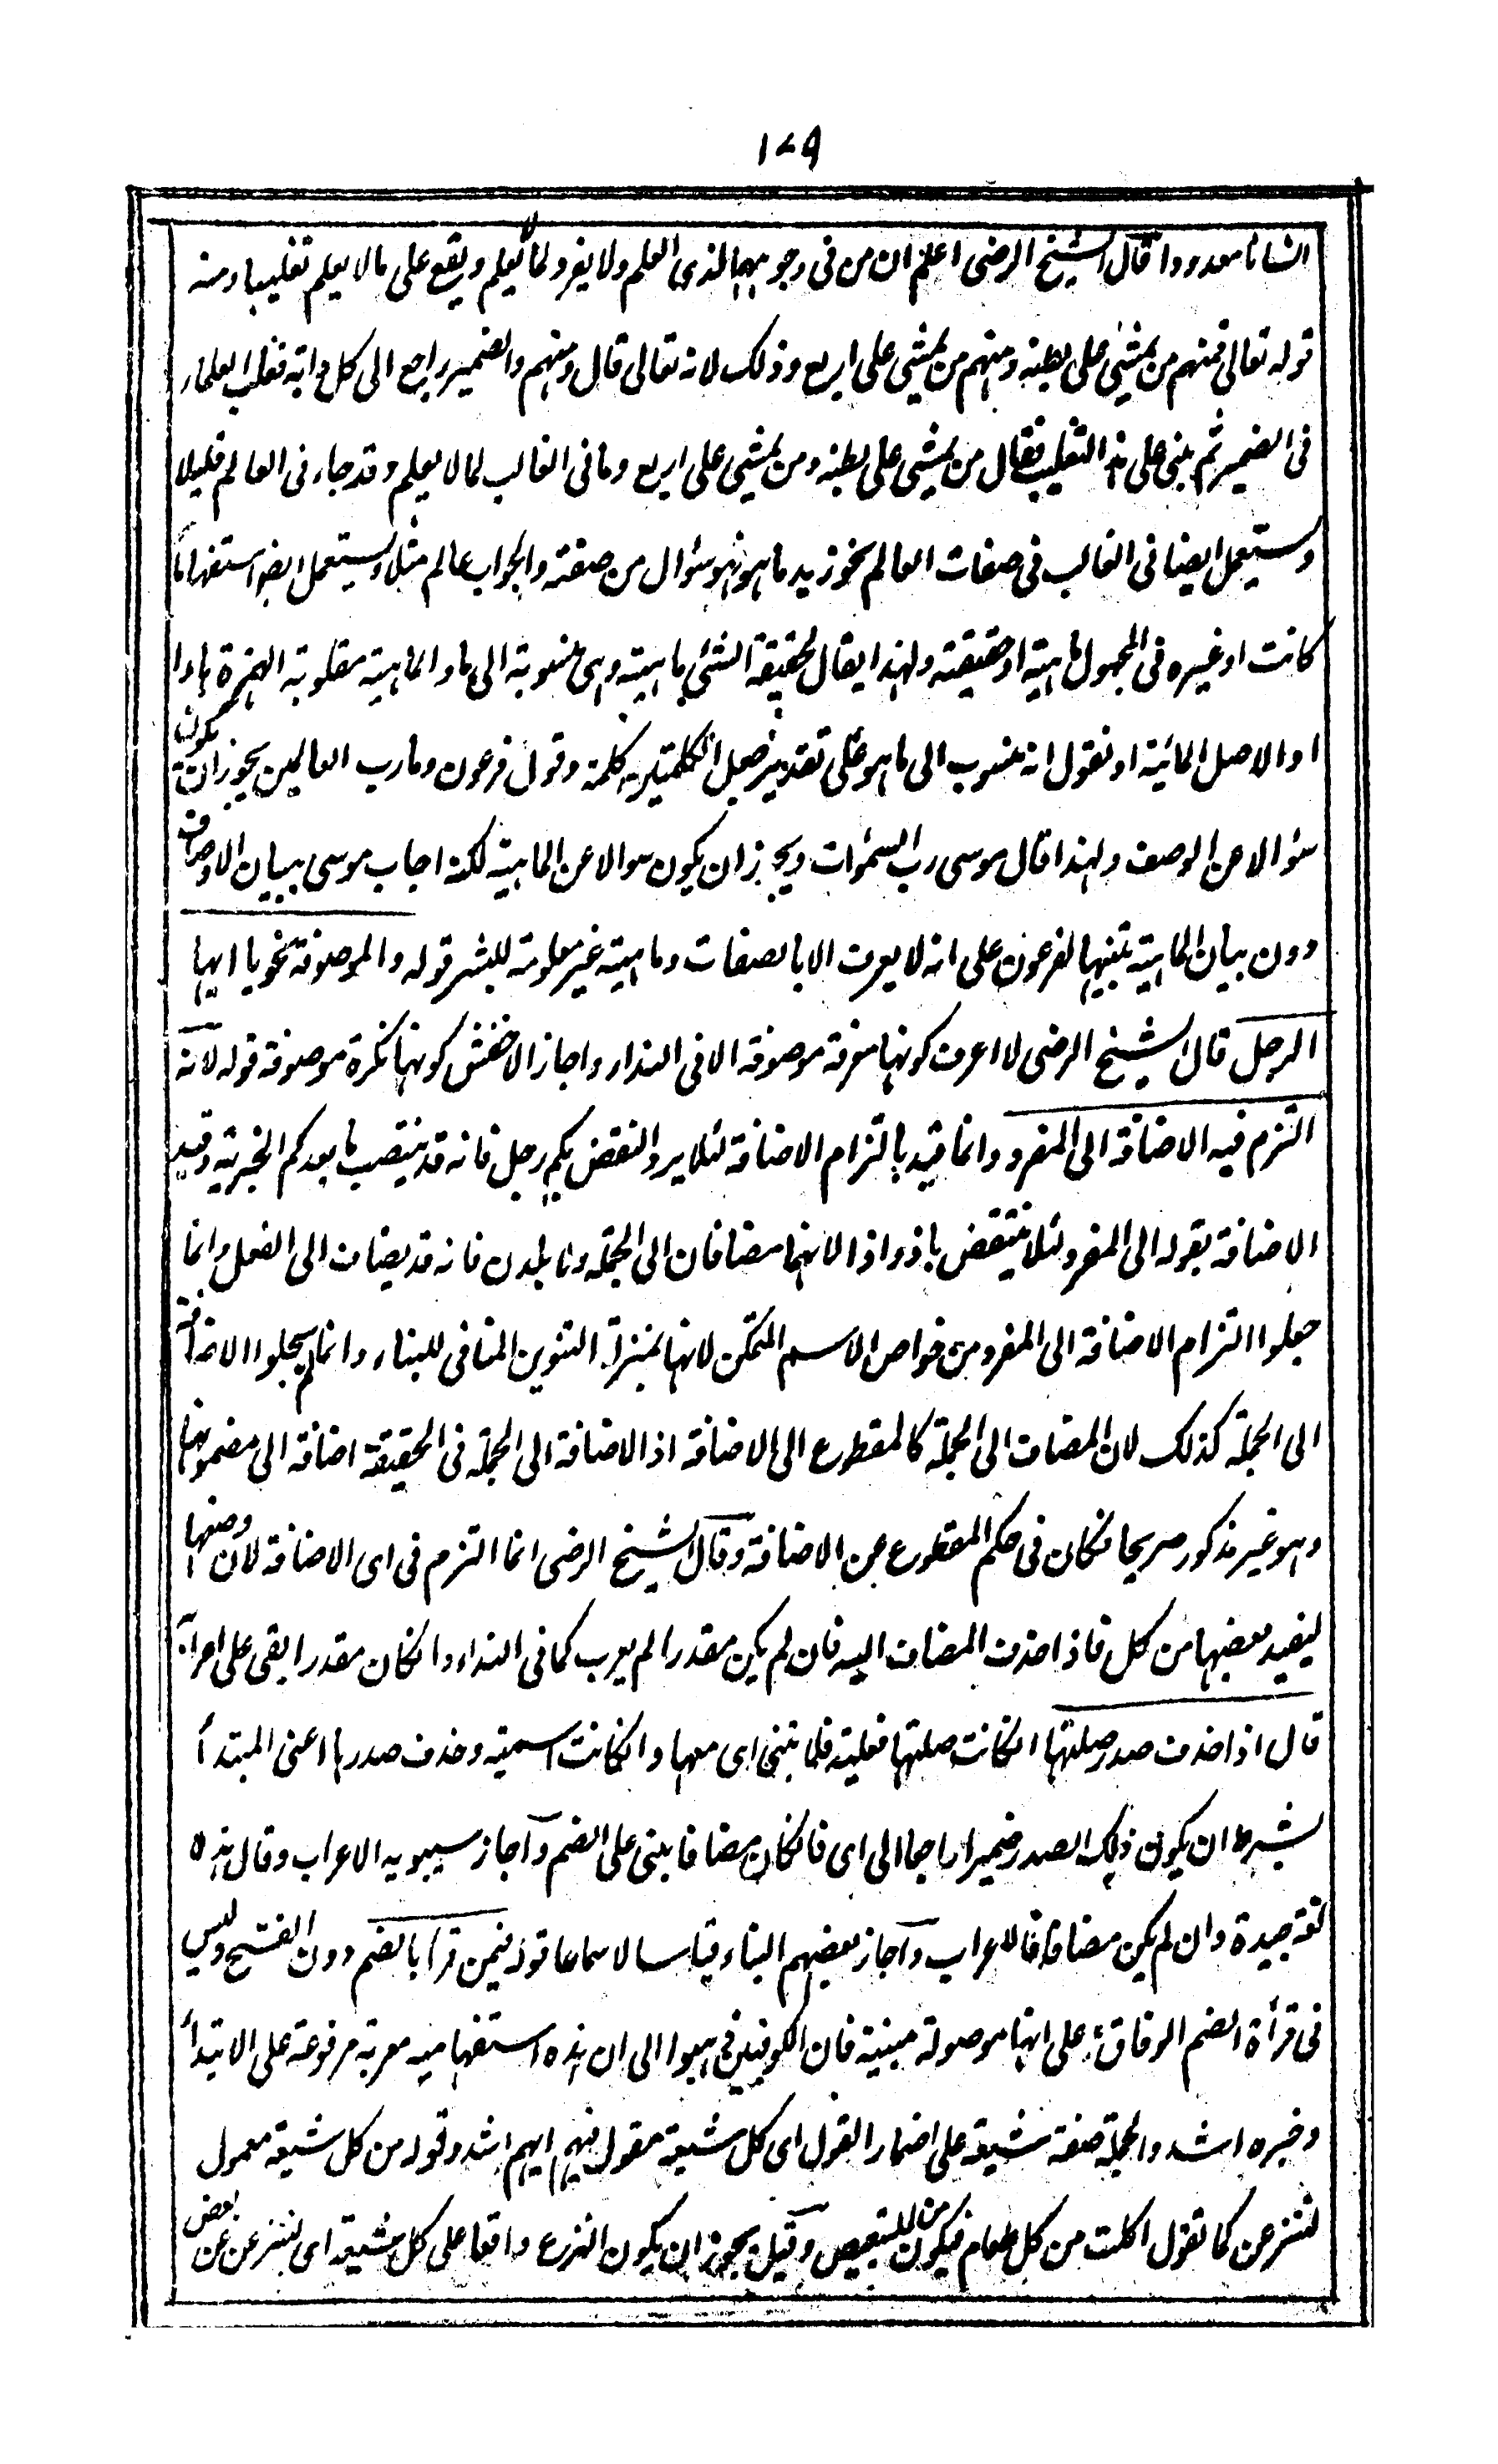 ١٧٩
انشانا معدودا قال الشيخ الرضى اعلم ان من فى وجوهها لذى العلم ولا يفرد لما لا يعلم ويقع على مالا يعلم تغليبا ومنه
قوله تعالى فمنهم من يمشى على بطنه ومنهم من يمشى على اربع وذلك لانه تعالى قال ومنهم والضمير راجع الى كل دابة فغلب العلماء
فى الضمير ثم بنى على هذا التغليب فقال من يمشى على بطنه ومن يمشى على اربع وما فى الغالب لما لا يعلم وقد جاء فى العالم قليلا
وستعمل ايضا فى الغالب فى صفات العالم نحو زيد ما هو فهو سؤال من صفته والجواب عالم مثلا ويستعمل ايضا استفهاما
كانت او غيره فى المجهول ماهيته او حقيقته ولهذا يقال لحقيقة الشئ ماهيته وهى منسوبة الى ما والماهية مقلوبة الهمزة هاءا
او الاصل المائية او نقول انه منسوب الى ما هو على تقدير جعل الكلمتين كلمة وقول فرعون وما رب العالمين يجوز ان يكون
سؤالا عن الوصف ولهذا قال موسى رب السموات ويجوز ان يكون سوالا عن الماهية لكنه اجاب موسى ببيان الاوصاف
دون بيان الماهية تنبيها لفرعون على انه لا يعرف الا بالصفات وماهيته غير معلومة للبشر قوله والموصوفة نحو يا ايها
الرجل قال الشيخ الرضى لا اعرف كونها معرفة موصوفة الا فى النداء واجاز الاخفش كونها نكرة موصوفة قوله لانه
التزم فيه الاضافة الى المفرد وانما قيد بالتزام الاضافة لئلا يرد النقض بكم رجل فانه قد ينتصب ما بعد كم الخبرية وقيد
الاضافة بقوله الى المفرد لئلا ينتقض باذ واذا لانهما مضافان الى الجملة ولا بلدن فانه قد يضاف الى الفعل وانما
جعلوا التزام الاضافة الى المفرد من خواص الاسم المتمكن لانها بمنزلة التنوين المنافى للبناء وانما لم يجعلوا الاضافة
الى الجملة كذلك لان المضاف الى الجملة كالمقطوع الى الاضافة اذ الاضافة الى الجملة فى الحقيقة اضافة الى مضمونها
وهو غير مذكور صريحا فكان فى حكم المقطوع عن الاضافة وقال الشيخ الرضى انما التزم فى اى الاضافة لان وضعها
ليفيد بعضها من كل فاذا حذف المضاف اليه فان لم يكن مقدرا لم يعرب كما فى النداء وانكان مقدرا بقى على اعرابه
قال اذا حذف صدر صلتها انكانت صلتها فعلية فلا يبنى اى معها وانكانت اسمية وحذف صدرها اعنى المبتدأ
بشرط ان يكون ذلك الصدر ضميرا راجعا الى اى فانكان مضافا بنى على الضم وآجاز سيبويه الاعراب وقال هذه
لغة جيدة وان لم يكن مضافا فالاعراب وآجاز بعضهم البناء قياسا لا سماعا قوله فيمن قرأ بالضم دون الفتح وليس
فى قرأة الضم الوفاق على انها موصولة مبنية فان الكوفيين ذهبوا الى ان هذه استفهامية معربة مرفوعة على الابتدأ
وخبره اشد والجملة صفة شيعة على اضمار القول اى كل شيعة مقول فيهم ايهم اشد وقوله من كل شيعة معمول
لننزعن كما تقول اكلت من كل طعام فيكون من للتبعيض وقيل يجوز ان يكون النزع واقعا على كل شيعة اى لننزعن عن بعض